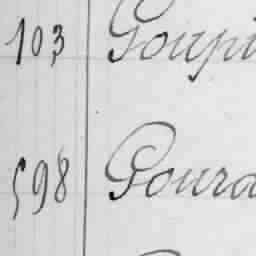 103 Goupi
598 Goura